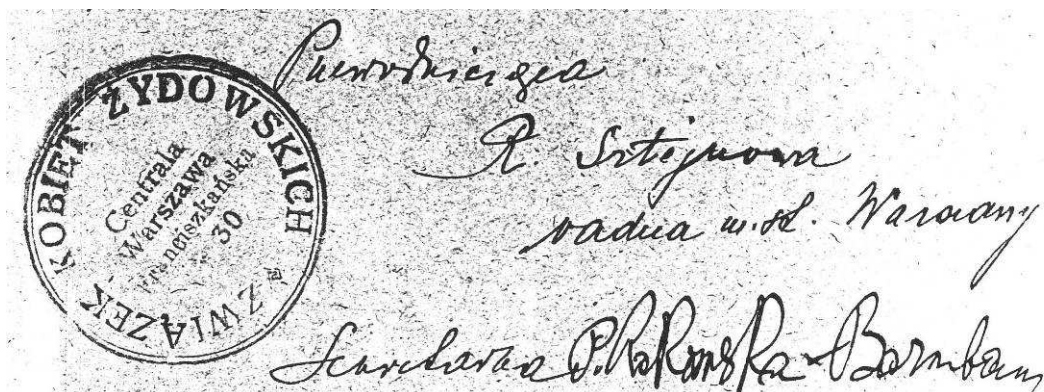 ZWIĄZEK KOBIET ŻYDOWSKICH
Centrala
Warszawa
Franciszkańska
30
Przewodnicząca
R. Sztejnowa
radna m. st. Warszawy
Secretarka P. Rakowska-Barnbaum